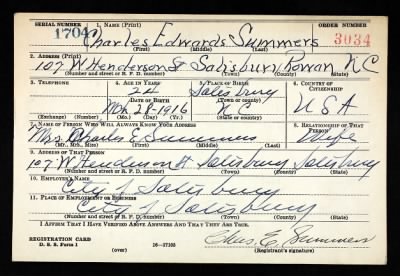 SERIAL NUMBER 1. Name (Print) ORDER NUMBER
1704 Charles Edwards Summers 3034
(First) (Middle) (Last)
2. Address (Print)
107 W Henderson St Salisbury Rowan N C
(Number and street or R. F. D. number) (Town) (County) (State)
3. Telephone 4. Age in Years 5. Place of Birth 6. Country of Citizenship
24 Salisbury
Date of Birth (Town or county)
Mch 26 1916 N C U S A
(Exchange) (Number) (Mo.) (Day) (Yr.) (State or country)
7. Name of Person Who Will Always Know Your Address 8. Relationship of That Person
Mrs Charles E Summers Wife
(Mr., Mrs., Miss) (First) (Middle) (Last)
9. Address of That Person
107 W Henderson St Salisbury Salisbury
(Number and street or R. F. D. number) (Town) (County) (State)
10. Employer's Name
City of Salisbury
11. Place of Employment or Business
City of Salisbury
(Number and street or R. F. D. number) (Town) (County) (State)
I Affirm That I Have Verified Above Answers and That They Are True.
REGISTRATION CARD
D. S. S. Form 1 Chas. E. Summers
(over) 16-17105 (Registrant's signature)